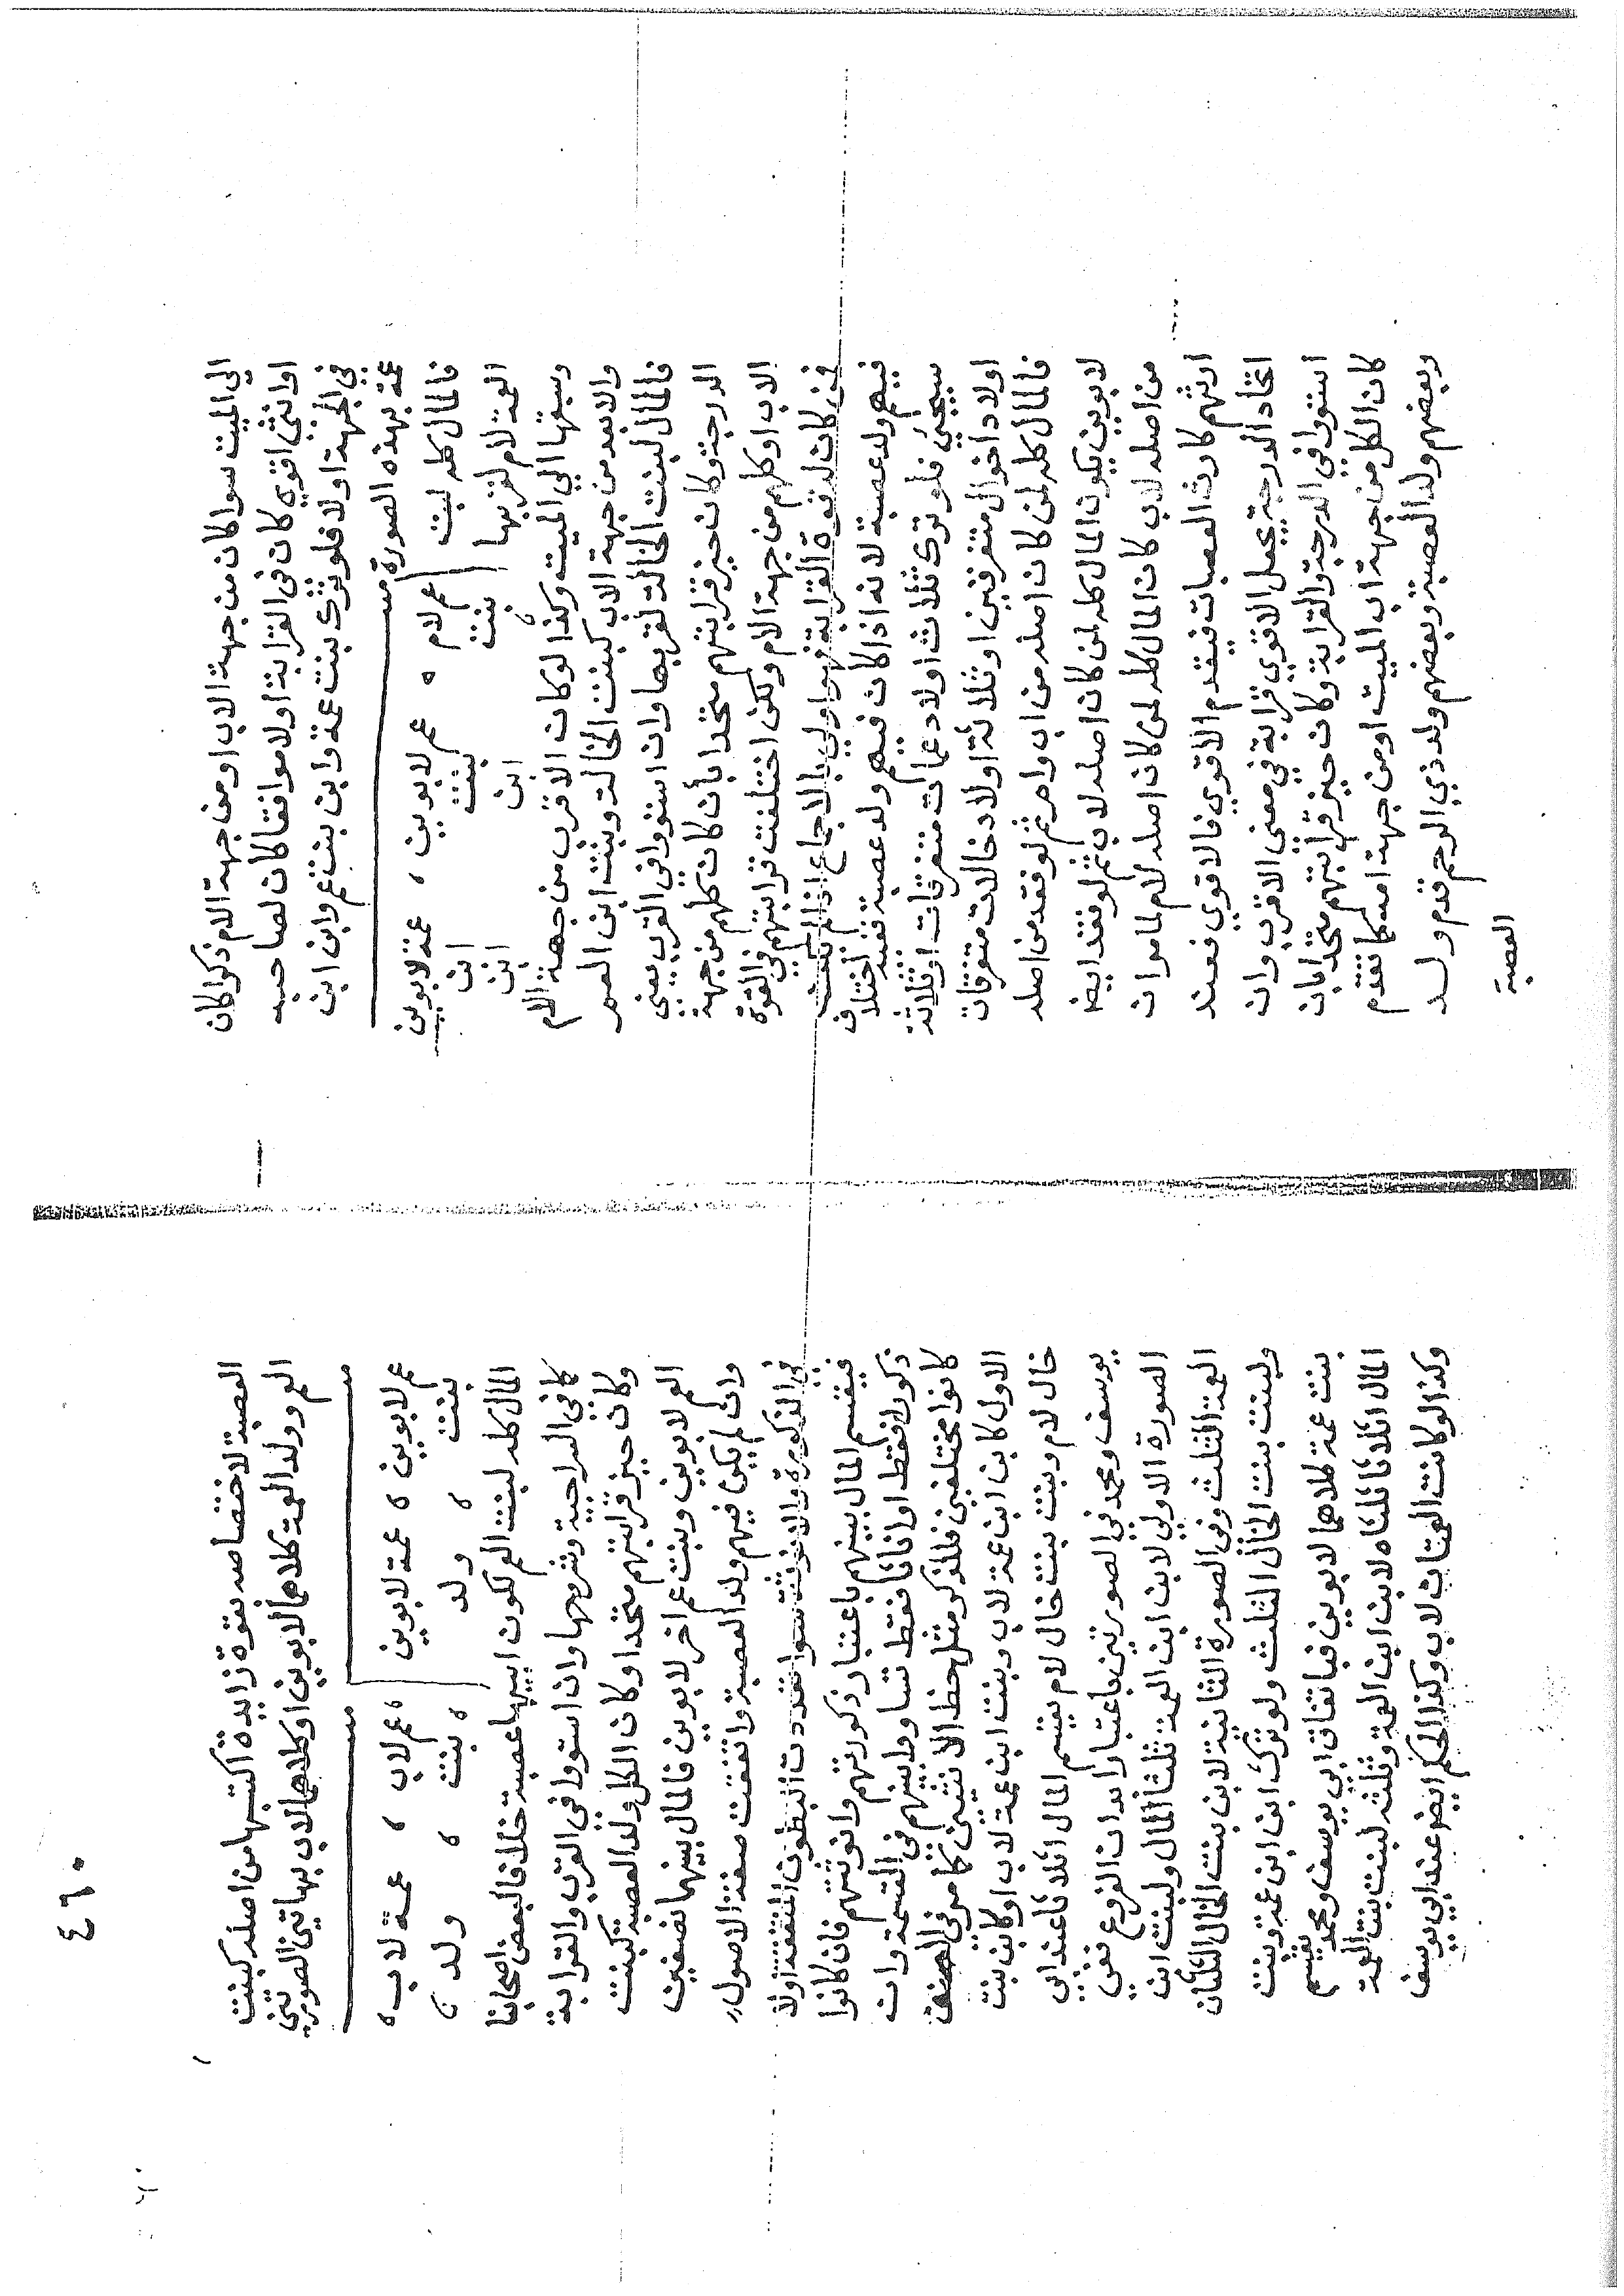 الي الميت سوا كان من جهة الاب او من جهة الام ذكرا كان
او انثي اقوي كان في القرابة اولا موافقا كان لصاحبه
في الجهة اولا فلو ترك بنت عمة وابن بنت عم وابن ابن
عمة بهذه الصورة
فالمال كله لبنت عم لام ه عم لابوين ، عمة لابوين
العمة لام لقربها بنت بنت ابن
ابن ابن
وسبقها الي الميت وكذا لو كان الاقرب من جهة الام
والابعد من جهة الاب كبنت الخالة وبنت ابن العم
فالمال لبنت الخالة لقربها وان استووا في القرب يعني
الدرجة وكان حيز قرابتهم متحدا بأن كان كلهم من جهة
الاب او كلهم من جهة الام ولكن اختلفت قرابتهم في القوة
فمن كان له قوة القرابة فهو اولي بالاجماع اذا لم
فيهم ولد عصبة لانه اذا كان فيهم ولد عصبة ففيه اختلاف
سيجئ فلو ترك ثلاث اولاد عمات متفرقات او ثلاثة
اولاد اخوال متفرقين او ثلاثة اولاد خالات متفرقات
فالمال كله لمن كان اصله من اب وام ثم لو فقد من اصله
لابوين يكون المال كله لمن كان اصله لاب ثم لو فقد ايضا
من اصله لاب كان المال كله لمن كان اصله لام لما مر ان
ارثهم كارث العصبات فيقدم الاقوي فالاقوي فعند
اتحاد الدرجة يجعل الاقوي قرابة في معني الاقرب وان
استووا في الدرجة والقرابة وكان حيز قرابتهم متحدا بان
كان الكل من جهة اب الميت او من جهة امه كما تقدم
وبعضهم ولد العصبة وبعضهم ولد ذي الرحم قدم ولد
العصبة
٤٦٠
العصبة لاختصاصه بقوة زايدة اكتسبها من اصله كبنت
العم وولد العمة كلاهما لابوين او كلاهما لاب بهاتين الصورتين
عم لابوين ه عمة لابوين عم لاب ، عمة لاب ه
بنت ه ولد ه بنت ه ولد ه
المال كله لبنت العم لكون ابيها عصبة خلافا لبعض اصحابنا
كما في السراجية وشرحها وان استووا في القرب والقرابة
وكان حيز قرابتهم متحدا وكان الكل ولد العصبة كبنت
العم لابوين وبنت عم اخر لابوين فالمال بينهما نصفين
وان لم يكن فيهم ولد العصبة واتفقت صفة الاصول
في الذكورة والانوثة سوا تعددت البطون المتفقة اولا
فيقسم المال بينهم باعتبار ذكورتهم وانوثتهم فان كانوا
ذكورا فقط او اناثا فقط تساووا بينهم في القسمة وان
كانوا مختلفين فللذكر مثل حظ الانثيين كما مر في الصنف
الاول كابن ابن عمة لاب وبنت ابن عمة لاب او كابن بنت
خال لام وبنت بنت خال لام يقسم المال اثلاثا عند ابي
يوسف ومحمد في الصورتين باعتبار ابدان الفروع ففي
الصورة الاولي لابن ابن العمة ثلثا المال ولبنت ابن
العمة الثلث وفي الصورة الثانية لابن بنت الخال الثلثان
ولبنت بنت الخال الثلث ولو ترك ابن ابن عمة وبنت
بنت عمة كلاهما لابوين فباتفاق ابي يوسف ومحمد يقسم
المال اثلاثا ثلثاه لابن ابن العمة وثلثه لبنت بنت العمة
وكذا لو كانت العمتان لاب وكذا الحكم ايضا عند ابي يوسف